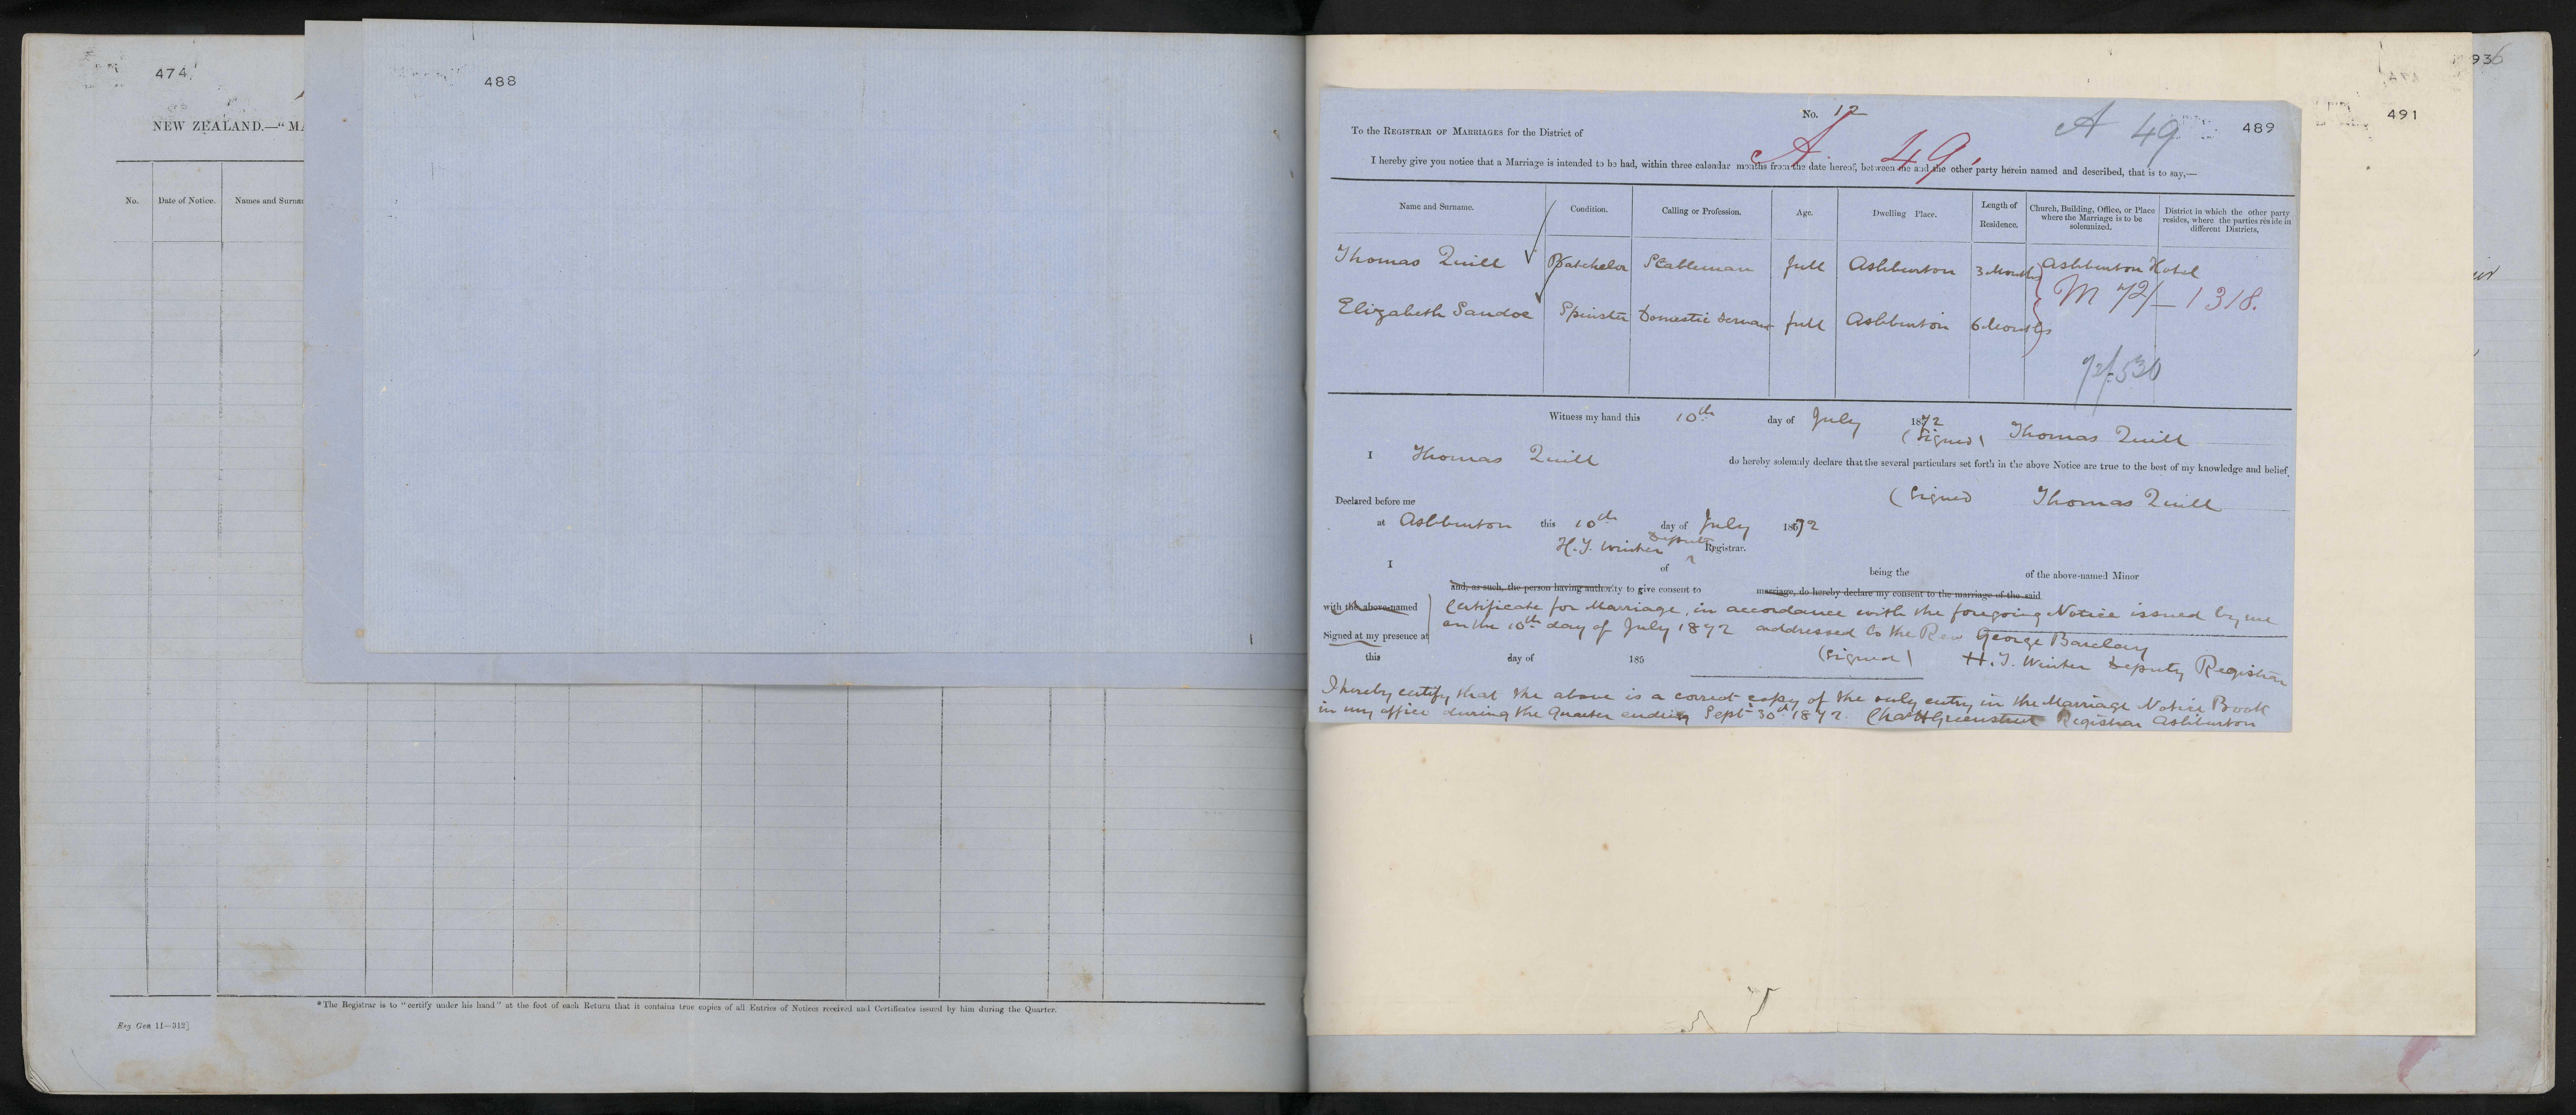 474
NEW ZEALAND.—"MA
No.
Date of Notice.
Names and Surna
488
*The Registrar is to "certify under his hand" at the foot of each Return that it contains true copies of all Entries of Notices received and Certificates issued by him during the Quarter.
Reg Gen 11—312]
936
491
489
No. 12
A 49
To the REGISTRAR OF MARRIAGES for the District of
A 49
I hereby give you notice that a Marriage is intended to be had, within three calendar months from the date hereof, between me and the other party herein named and described, that is to say,—
Name and Surname.
Condition.
Calling or Profession.
Age.
Dwelling Place.
Length of Residence.
Church, Building, Office, or Place where the Marriage is to be solemnized.
District in which the other party resides, where the parties reside in different Districts,
Thomas Quill Batchelor Stableman full Ashburton 3 Months Ashburton Hotel
M 72/—1318.
Elizabeth Sandoe Spinster Domestic Servant full Ashburton 6 Months
72/530
Witness my hand this 10th day of July 1872
(Signed) Thomas Quill
I Thomas Quill do hereby solemnly declare that the several particulars set forth in the above Notice are true to the best of my knowledge and belief.
Declared before me (Signed Thomas Quill
at Ashburton this 10th day of July 1872
H. T. Winter Deputy Registrar.
I of being the of the above-named Minor
and, as such, the person having authority to give consent to marriage, do hereby declare my consent to the marriage of the said
with the above-named
Certificate for Marriage, in accordance with the foregoing Notice issued by me
on the 10th day of July 1872 addressed to the Rev George Barclay
Signed at my presence at
this day of 185 (Signed) H. T. Winter Deputy Registrar
I hereby certify that the above is a correct copy of the only entry in the Marriage Notice Book
in my office during the Quarter ending Sept 30th 1872. Chas H Greenstreet Registrar Ashburton